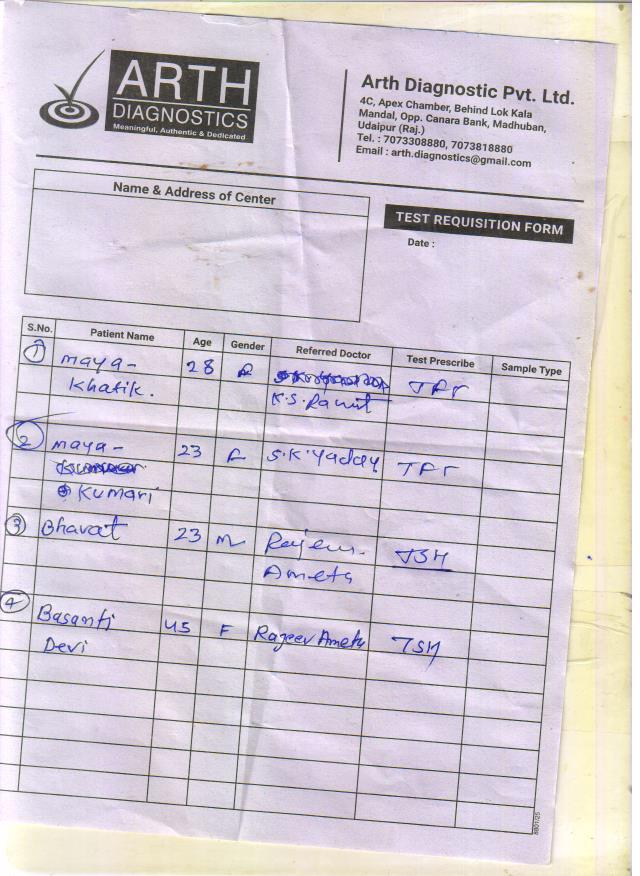 ARTH
DIAGNOSTICS
Meaningful, Authentic & Dedicated
Arth Diagnostic Pvt. Ltd.
4C, Apex Chamber, Behind Lok Kala
Mandal, Opp. Canara Bank, Madhuban,
Udaipur (Raj.)
Tel. : 7073308880, 7073818880
Email : arth.diagnostics@gmail.com
Name & Address of Center
TEST REQUISITION FORM
Date :
S.No. Patient Name Age Gender Referred Doctor Test Prescribe Sample Type
1 Maya- 28 F
Khatik. K.S.
2 Maya- 23 F S.K. Yadav
Kumari
3 Bharat 23 M TSH
Ameta
4 Basanti 45 F Rajeev Ameta TSH
Devi
8801/25